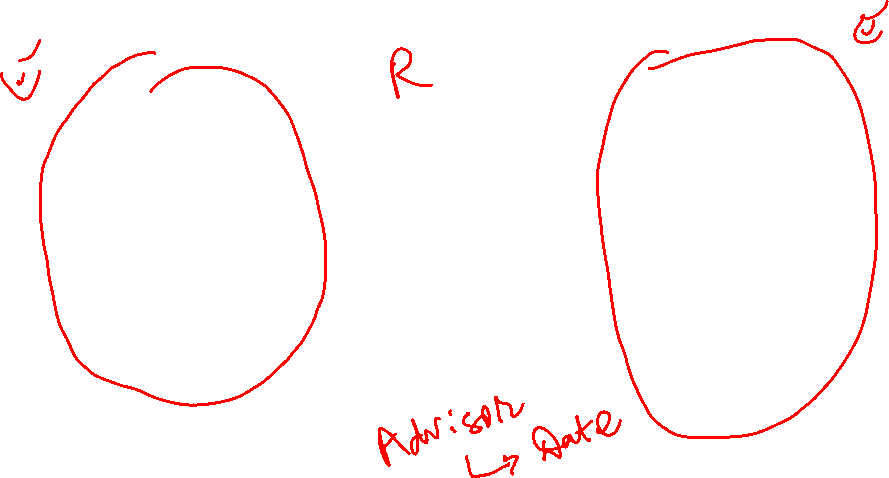 R
Advisor
↳ Date